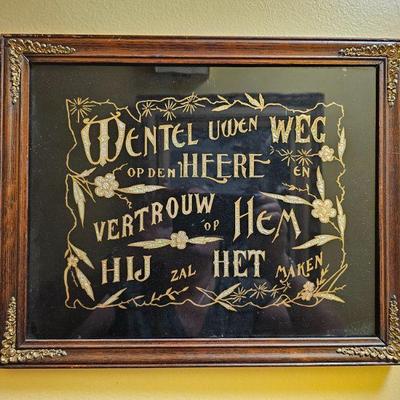 WENTEL UWEN WEG
OP DEN HEERE EN
VERTROUW OP HEM
HIJ ZAL HET MAKEN